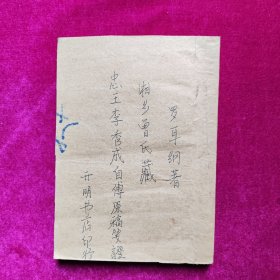 罗耳纲著
湘乡曾氏藏
忠王李秀成自傳原稿箋證
开明书店印行